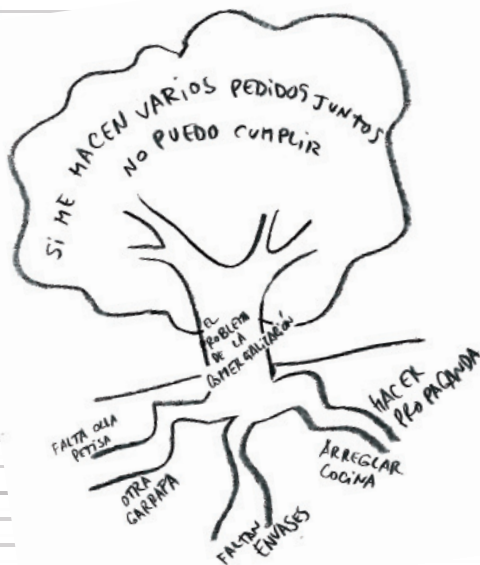 SI ME HACEN VARIOS PEDIDOS JUNTOS
NO PUEDO CUMPLIR
EL
PROBLEMA
DE LA
COMERCIALIZACIÓN
FALTA OLLA
PETISA
OTRA
GARRAFA
FALTAN
ENVASES
ARREGLAR
COCINA
HACER
PROPAGANDA